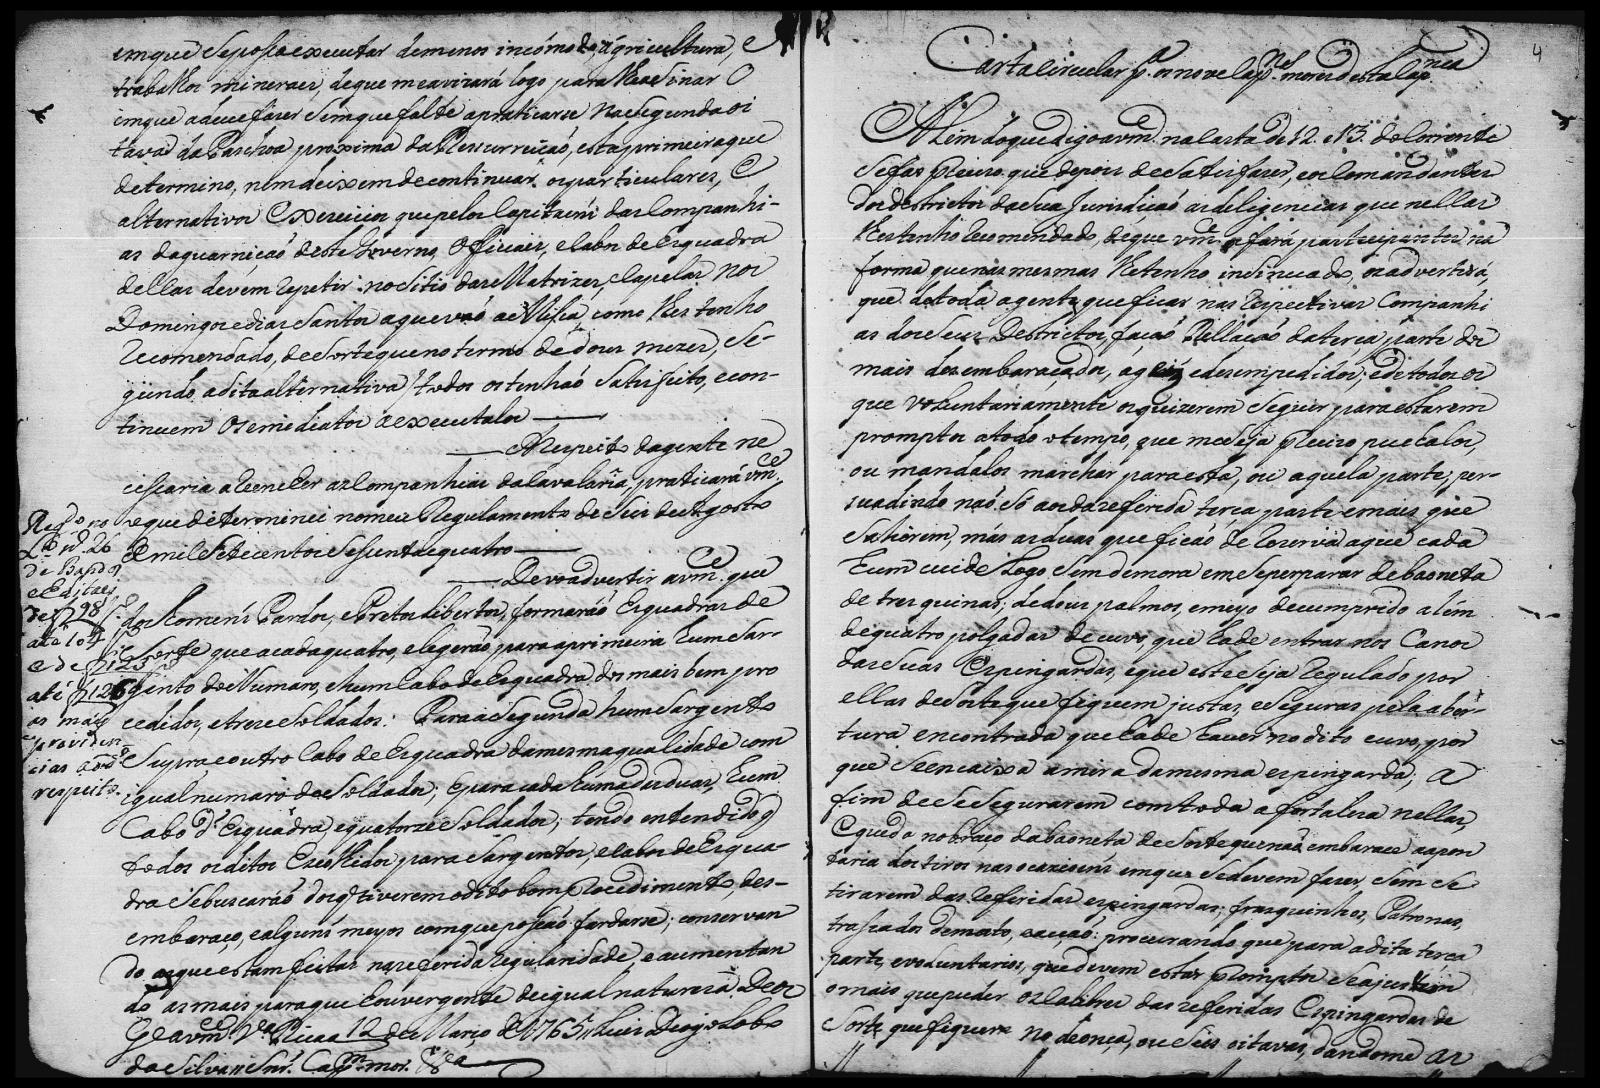 em que se possa executar de menos incómodo dagricultura, e
trabalhos mineraes, de que me avizará logo para lhe asinar o
em que a deve fazer sem que falte a praticarse na segunda oi
tava da Paschoa proxima da Resurreiçaõ, esta primeira que
determino, nem deixem de continuar os particulares, e
alternativos Exercicios que pelos Capitaens das Companhi-
as da guarniçaõ deste Governo, Officiais, e Cabos de Esquadra
dellas devem repetir no sitio das Matrizes, e Capelas nos
Domingos e dias Santos a que vaõ a Missa como lhes tenho
recomendado, de sorte que no termo de dous mezes, se-
gundo a dita alternativa, todos o tenhaõ satisfeito, e con-
tinuem os imediatos a executalos
A respeito da gente ne
cessaria a encher as Companhias da Cavalaria, praticará vm.ce
o que determinei no meu Regulamento de Seis de Agosto
de mil setecentos sessenta e quatro
Devo advertir a vm.ce que
dos Homens Pardos, e Pretos libertos, formaráõ Esquadras de
sorte que a cada quatro, elegeráõ para a primeira hum Sar-
gento do Numaro, e hum Cabo de Esquadra dos mais bem pro
cedidos, e treze Soldados: Para a Segunda hum Sargento
Supra e outro Cabo de Esquadra da mesma qualidade com
igual numaro de Soldados; e para cada húma das duas, hum
Cabo d' Esquadra, e quatorze Soldados; tendo entendido q
todos os ditos Escolhidos para Sargentos, e Cabos de Esqua-
dra se buscaráõ dos q tiverem o dito bom Procedimento, des-
embaraço, e alguns meyos com que possaõ fardarse; conservan
do as que estam feitas na referida regularidade, e aumentan
do as mais para que houver gente de igual natureza. Deos
G.e a vm.ce V.a Rica a 12 de Março de 1765 // Luis Diogo Lobo
da Silva // Snr. Cap.m mor.
Reg.do no
L.o id. 26
de Bandos
e Editaes
de f 98
até 104
e de f 125
até f 126
as mais
providen
cias a este
respeito.
4
Carta circular p.a os nove Cap.es mores desta Cap.nia
Alem do que digo a vm.ce na Carta de 12. e 13. do Corrente
se faz precizo que depois de satisfazer, e os Comandantes
dos destrictos da sua Jurisdiçaõ as deligencias que nellas
lhes tenho recomendado, de que vm.ce os fará participantes na
forma que nas mesmas lhe tenho insinuado, os advertirá,
que de toda a gente que ficar nas respectivas Companhi
as dos seus Destrictos, façaõ Rellaçaõ da terça parte dos
mais desembaraçados, ageis e desempedidos; e de todos os
que voluntariamente os quizerem seguir para estarem
promptos a todo o tempo, que me seja precizo puchalos,
ou mandalos marchar para esta, ou aquela parte, per-
suadindo naõ só aos da referida terça parte e mais que
sahirem, mas as duas que ficaõ de rezerva a que cada
hum cuide logo sem demora em se perparar de baoneta
de tres quinas, de dous palmos, e meyo de cumprido alem
de quatro polgadas de cuvo, que ha de entrar nos Canos
das suas Espingardas, e que este seja regulado por
ellas de sorte que fiquem justas, e seguras pela aber-
tura encontrada que ha de haver no dito cuvo, por
que se encaixa a mira da mesma espingarda; a
fim de se segurarem com toda a fortaleza nellas,
e quedo no braço da baoneta de sorte que naõ embarace a pon
taria dos tiros nas ocazioens em que se devem fazer, sem se
tirarem das referidas espingardas; frasquinhos, Patronas,
trassados de mato, e acçaõ: procurando que para a dita terça
parte e voluntarios, que devem estar promptos se ajustem
o mais que puder os Calibres das referidas Espingardas de
sorte que fiquem no de onça, ou seis oitavas, dandome as